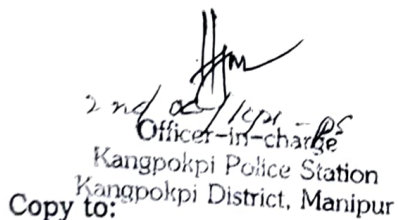 2nd oc/kpi-ps
Officer-in-charge
Kangpokpi Police Station
Kangpokpi District, Manipur
Copy to: